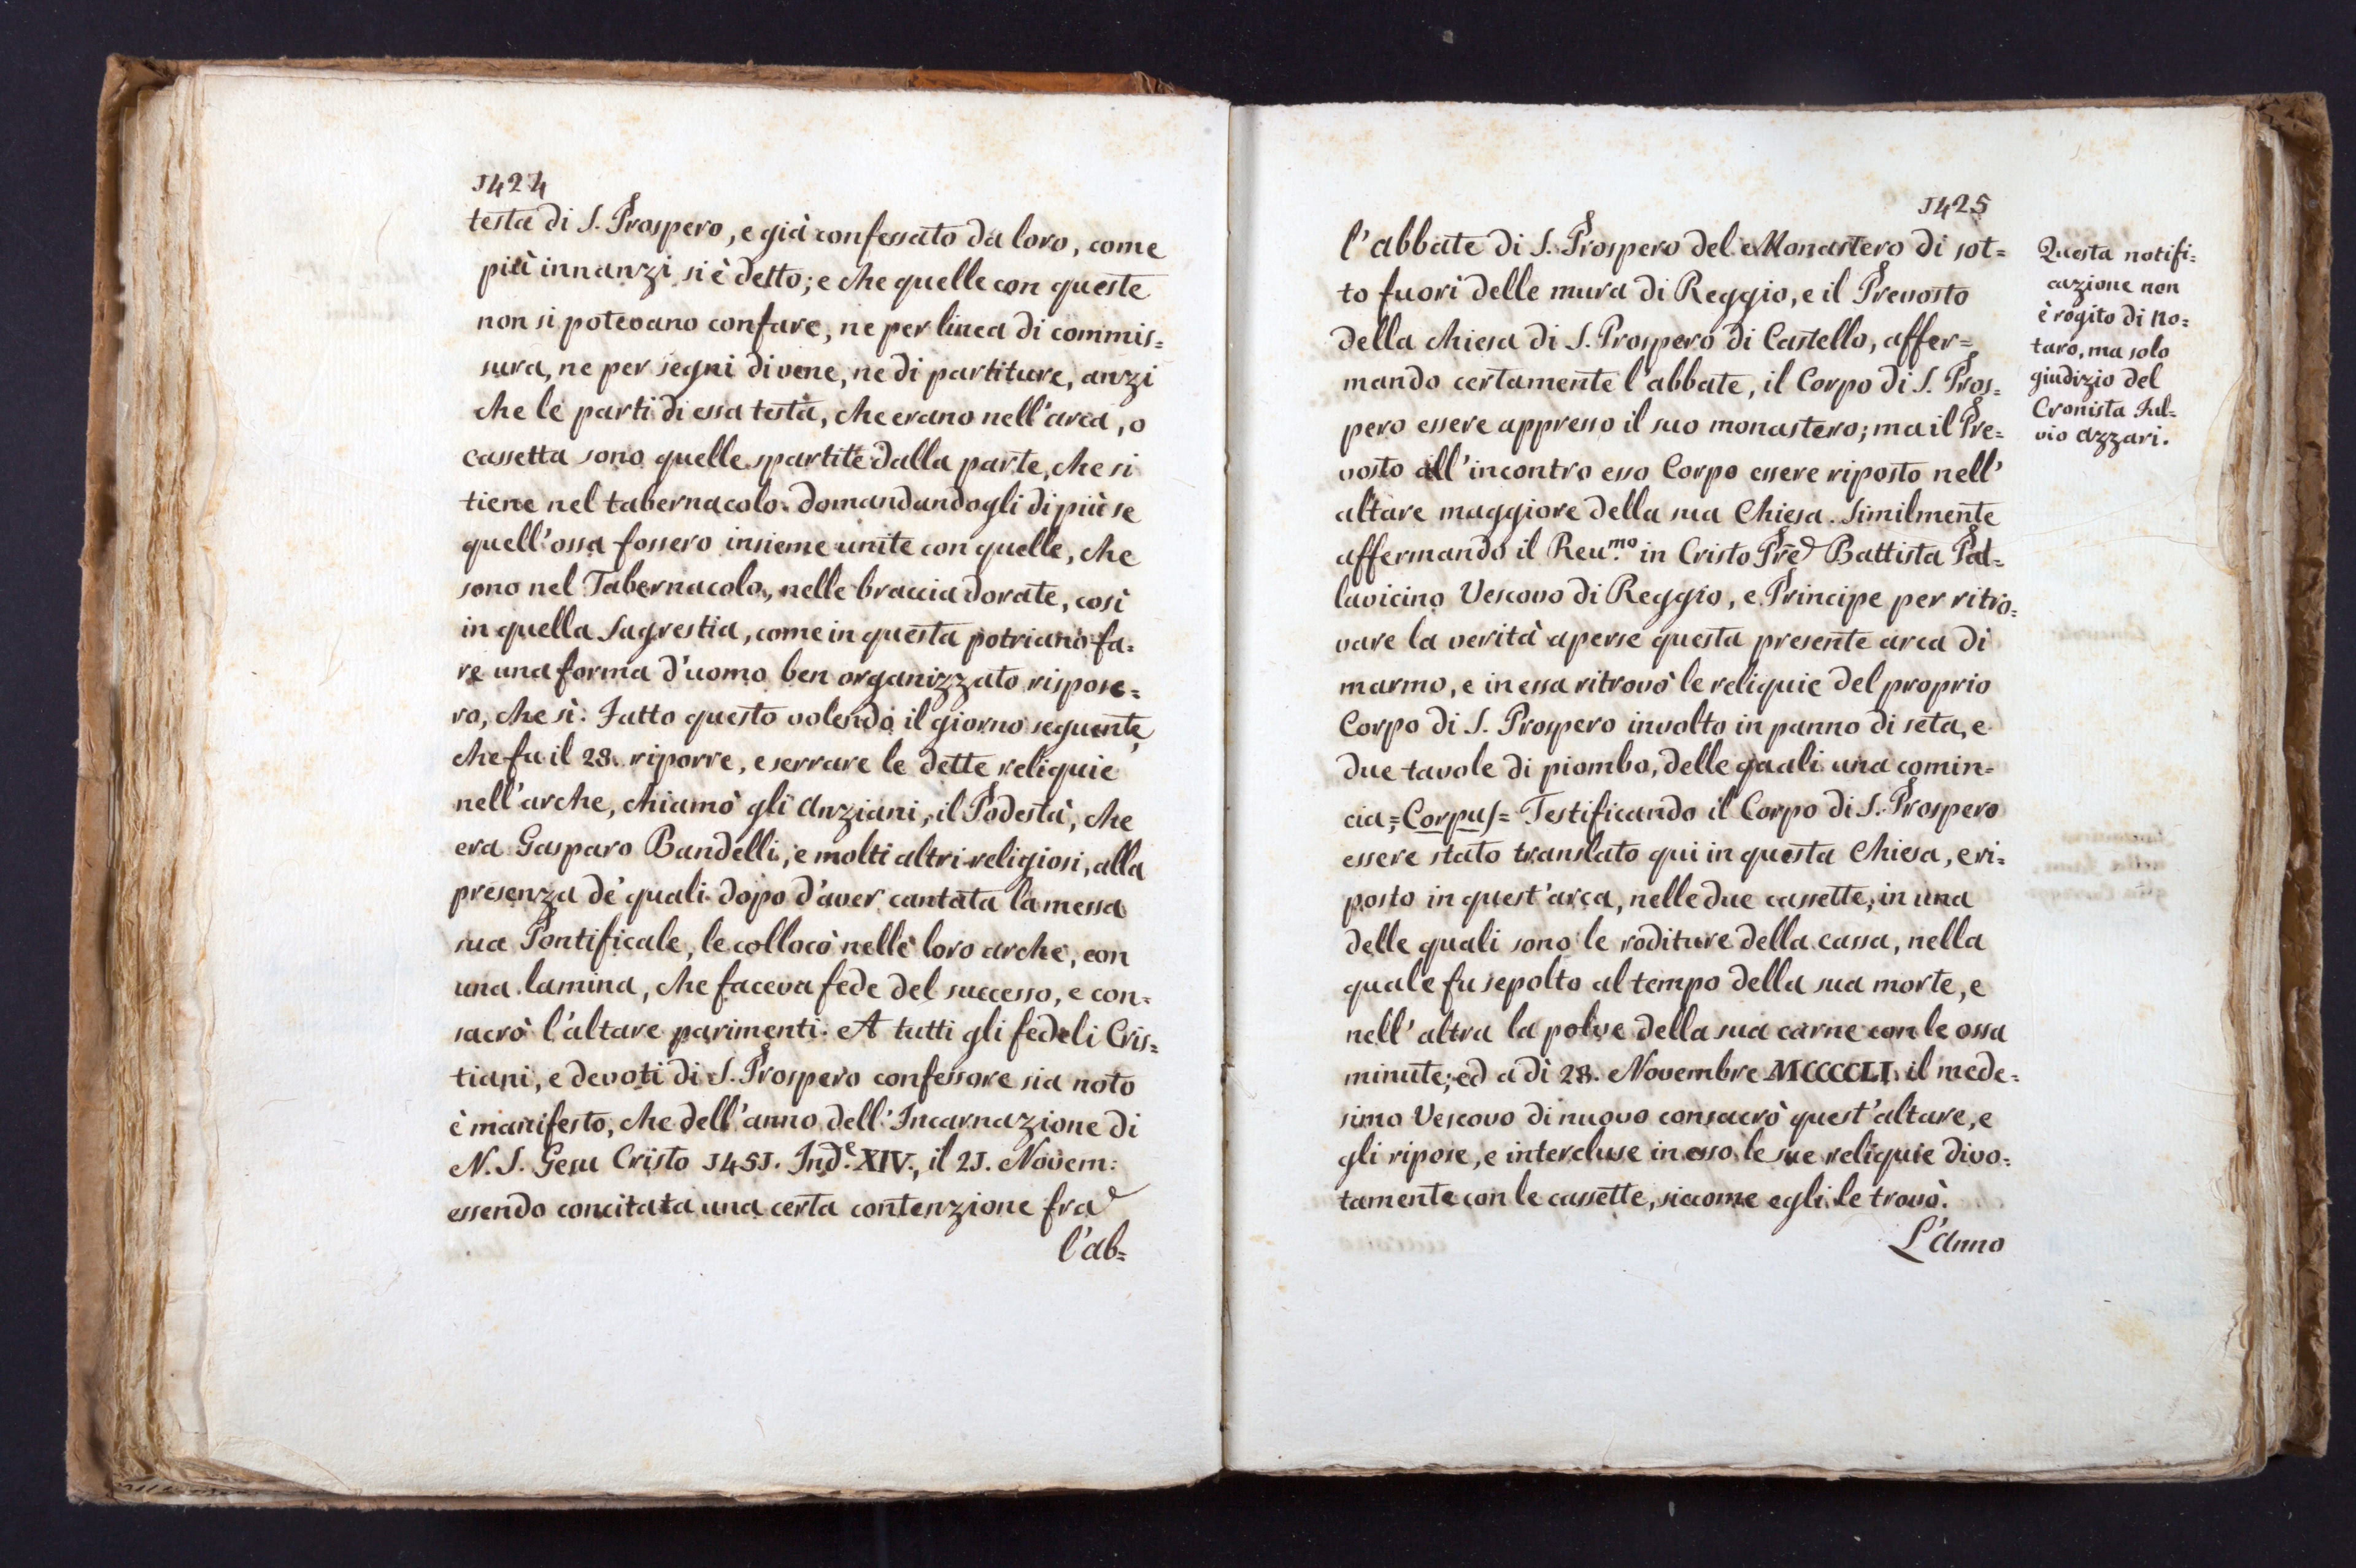 1424
testa di S. Prospero, e già confessato da loro, come
più innanzi si è detto; e che quelle con queste
non si potevano confare, ne per linea di commis=
sura, ne per segni di vene, ne di partiture, anzi
che le parti di essa testa, che erano nell'arca, o
cassetta sono quelle spartite dalla parte, che si
tiene nel tabernacolo. domandandogli di più se
quell'ossa fossero insieme unite con quelle, che
sono nel Tabernacolo, nelle braccia dorate, così
in quella Sagrestia, come in questa potriano fa=
re una forma d'uomo ben organizzato rispose=
ro, che sì. Fatto questo volendo il giorno seguente,
che fu il 28. riporre, e serrare le dette reliquie
nell'arche, chiamò gli Anziani, il Podestà, che
era Gasparo Bandelli, e molti altri religiosi, alla
presenza de' quali dopo d'aver cantata la messa
sua Pontificale, le collocò nelle loro arche, con
una lamina, che faceva fede del successo, e con=
sacrò l'altare parimenti. A tutti gli fedeli Cris=
tiani, e devoti di S. Prospero confessore sia noto
è manifesto, che dell'anno dell'Incarnazione di
N. S. Gesu Cristo 1451. Ind.e XIV., il 21. Novem:
essendo concitata una certa contenzione fra
l'ab=
1425
l'abbate di S. Prospero del Monastero di sot=
to fuori delle mura di Reggio, e il Prevosto
della chiesa di S. Prospero di Castello, affer=
mando certamente l'abbate, il Corpo di S. Pros=
pero essere appresso il suo monastero; ma il Pre=
vosto all'incontro esso Corpo essere riposto nell'
altare maggiore della sua Chiesa. Similmente
affermando il Reu.mo in Cristo Prē Battista Pal=
lavicino Vescovo di Reggio, e Principe per ritro=
vare la verità aperse questa presente arca di
marmo, e in essa ritrovò le reliquie del proprio
Corpo di S. Prospero involto in panno di seta, e
due tavole di piombo, delle quali una comin=
cia =Corpus= Testificando il Corpo di S. Prospero
essere stato translato qui in questa Chiesa, e ri=
posto in quest'arca, nelle due cassette, in una
delle quali sono le roditure della cassa, nella
quale fu sepolto al tempo della sua morte, e
nell'altra la polve della sua carne con le ossa
minute; ed a dì 28. Novembre MCCCCLI. il mede=
simo Vescovo di nuovo consacrò quest'altare, e
gli ripose, e intercluse in esso le sue reliquie divo=
tamente con le cassette, siccome egli le trovò.
L'Anno
Questa notifi=
cazione non
è rogito di No=
taro, ma solo
giudizio del
Cronista Ful=
vio Azzari.